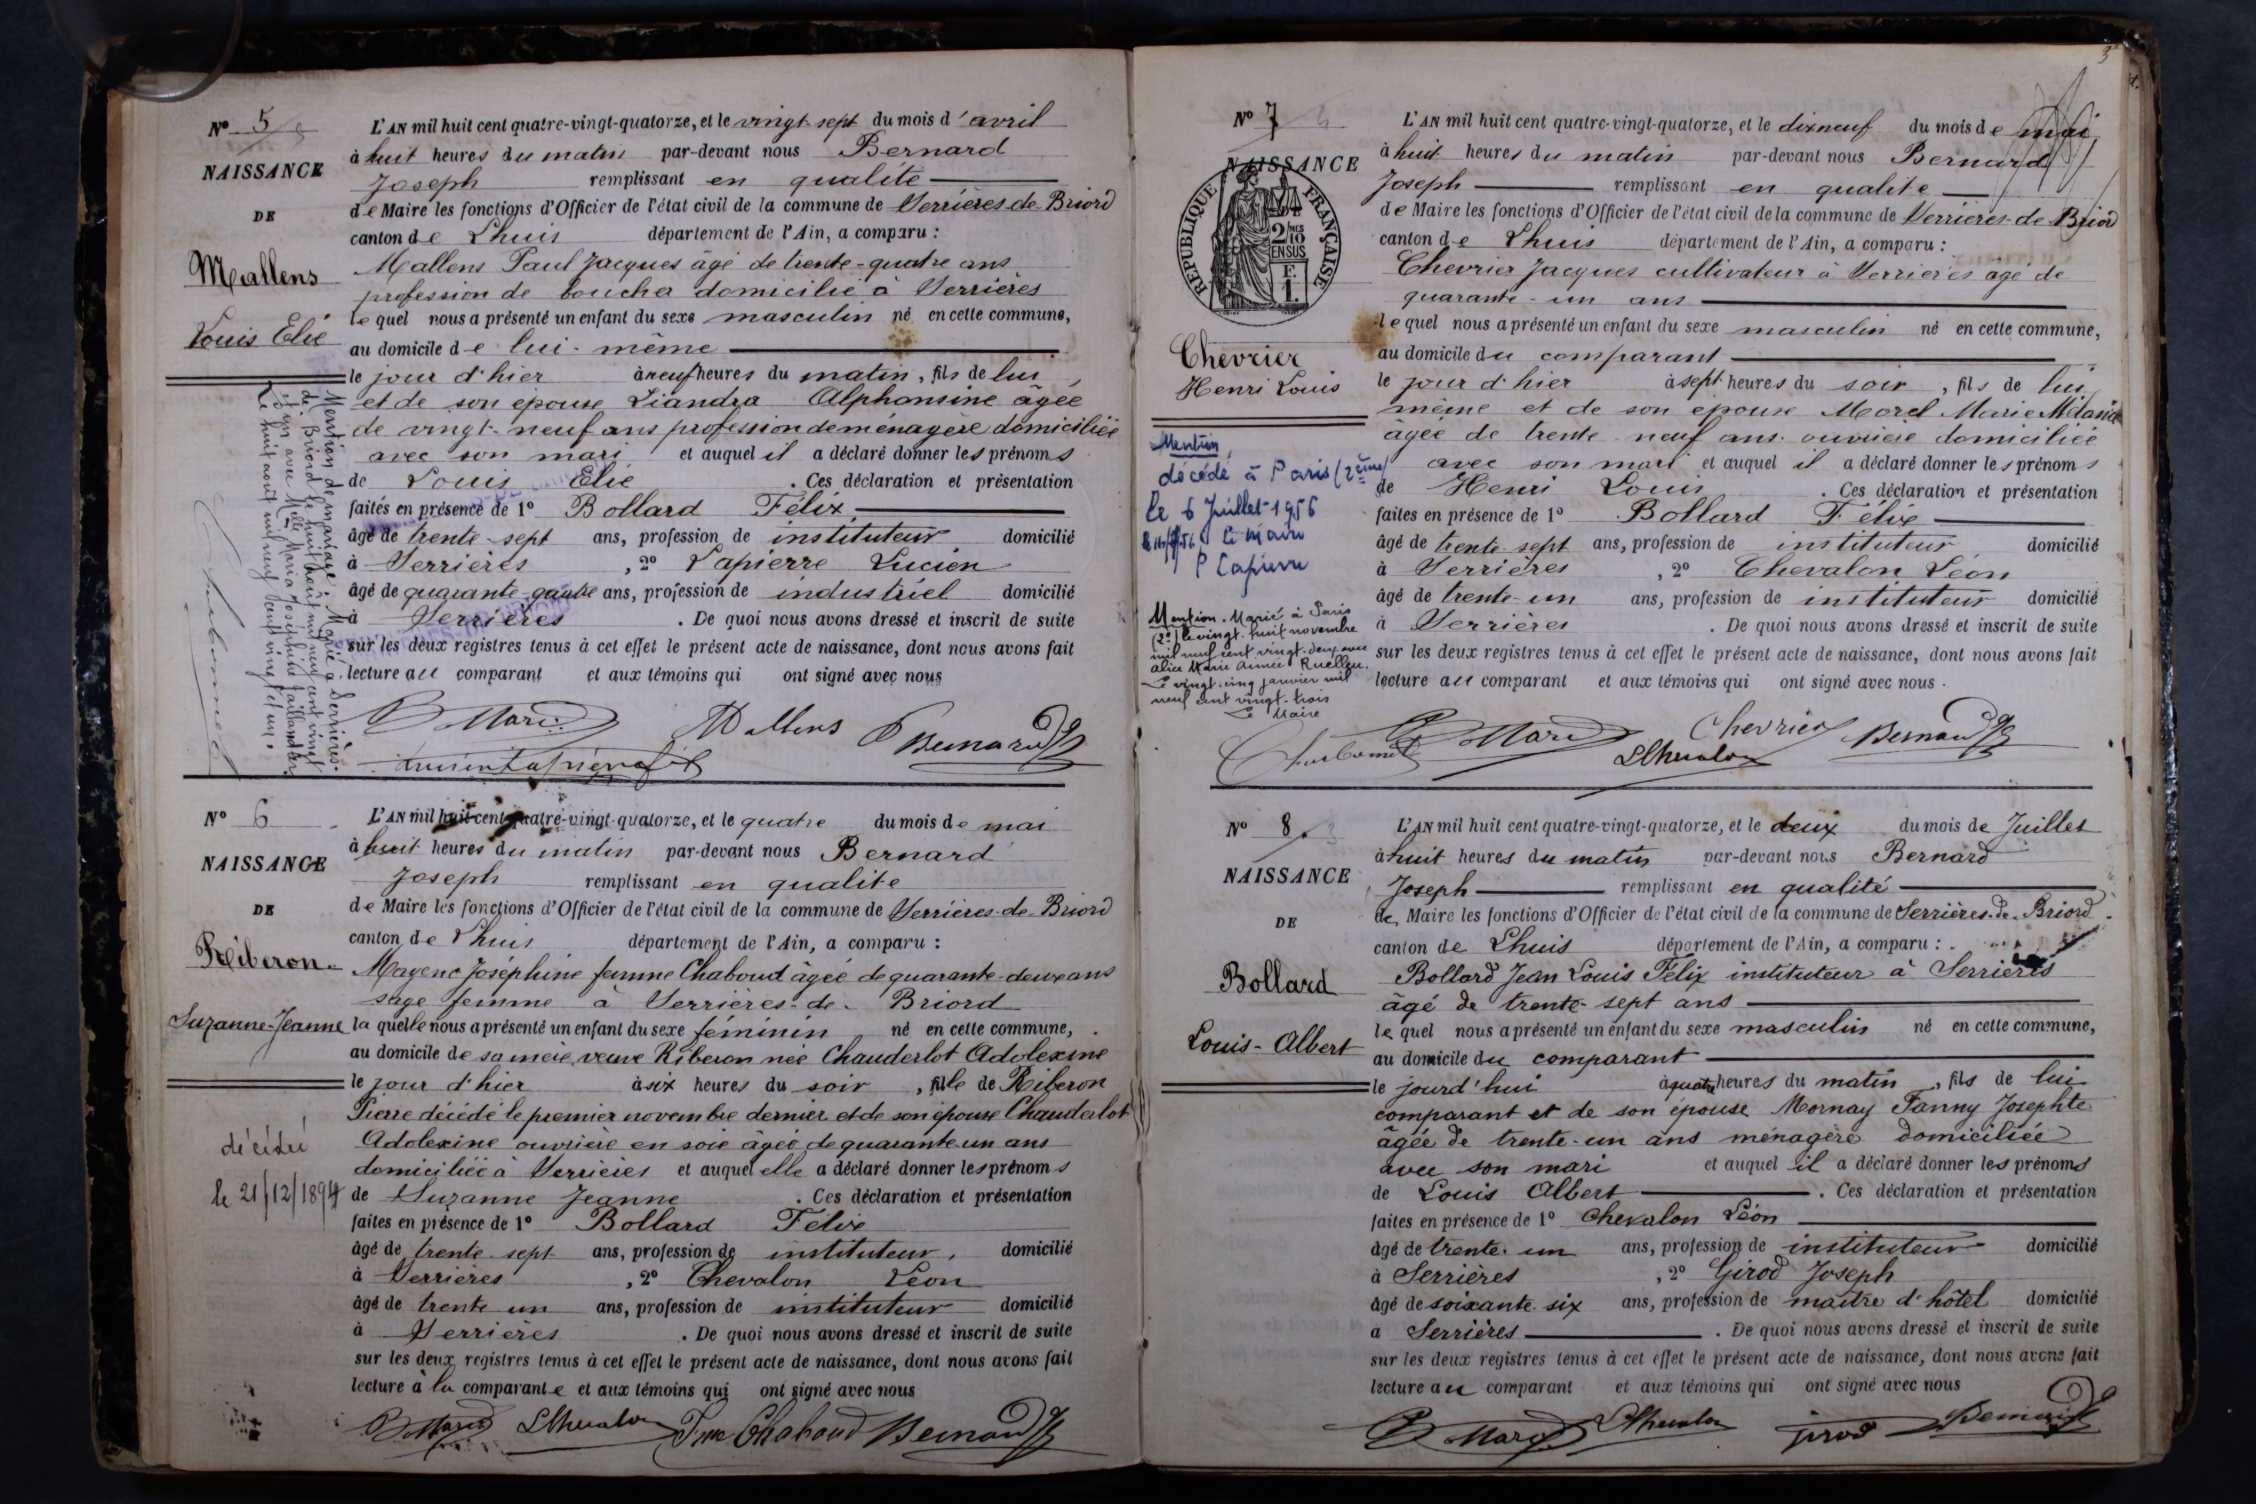 Nº 5
NAISSANCE
DE
Mallens
Louis Elie
L'AN mil huit cent quatre-vingt-quatorze, et le vingt-sept du mois d'avril
à huit heures du matin par-devant nous Bernard
Joseph remplissant en qualité
de Maire les fonctions d'Officier de l'état civil de la commune de Serrières-de-Briord
canton de Lhuis département de l'Ain, a comparu :
Mallens Paul Jacques âgé de trente-quatre ans
profession de boucher domicilié à Serrières
lequel nous a présenté un enfant du sexe masculin né en cette commune,
au domicile de lui-même
le jour d'hier à neuf heures du matin, fils de lui
et de son epouse Liandra Alphonsine âgée
de vingt-neuf ans profession de ménagère domiciliée
avec son mari et auquel il a déclaré donner les prénoms
de Louis Elie . Ces déclaration et présentation
faites en présence de 1º Bollard Félix
âgé de trente-sept ans, profession de instituteur domicilié
à Serrières , 2º Lapierre Lucien
âgé de quarante-quatre ans, profession de industriel domicilié
à Serrières . De quoi nous avons dressé et inscrit de suite
sur les deux registres tenus à cet effet le présent acte de naissance, dont nous avons fait
lecture au comparant et aux témoins qui ont signé avec nous
Bollard Mallens Bernard
Lucien Lapierre
Mention de mariage : Marié à Serrières-
de-Briord le huit mil neuf cent vingt
et un avec Melle Maria Joséphine
Le huit août mil neuf cent vingt et un.
Nº 6
NAISSANCE
DE
Riberon
Suzanne-Jeanne
décédée
le 21/12/1894
L'AN mil huit cent quatre-vingt-quatorze, et le quatre du mois de mai
à huit heures du matin par-devant nous Bernard
Joseph remplissant en qualité
de Maire les fonctions d'Officier de l'état civil de la commune de Serrières-de-Briord
canton de Lhuis département de l'Ain, a comparu :
Mayenc Joséphine femme Chaboud âgée de quarante-deux ans
sage femme à Serrières-de-Briord
laquelle nous a présenté un enfant du sexe féminin né en cette commune,
au domicile de sa mère veuve Riberon née Chauderlot Adolexine
le jour d'hier à six heures du soir, fille de Riberon
Pierre décédé le premier novembre dernier et de son épouse Chauderlot
Adolexine ouvrière en soie âgée de quarante-un ans
domiciliée à Serrières et auquel elle a déclaré donner les prénoms
de Suzanne Jeanne . Ces déclaration et présentation
faites en présence de 1º Bollard Félix
âgé de trente-sept ans, profession de instituteur, domicilié
à Serrières , 2º Chevalon Léon
âgé de trente un ans, profession de instituteur domicilié
à Serrières . De quoi nous avons dressé et inscrit de suite
sur les deux registres tenus à cet effet le présent acte de naissance, dont nous avons fait
lecture à la comparante et aux témoins qui ont signé avec nous
Bollard LChevalon Fme Chaboud Bernard
3
Nº 7
NAISSANCE
REPUBLIQUE FRANÇAISE
2/10 EN SUS
F. 1.
Chevrier
Henri Louis
Mention
décédé à Paris (2ème)
le 6 Juillet 1956
le Maire
P Lapierre
Mention. Marié à Paris
(2e) le vingt-huit novembre
mil neuf cent vingt-deux avec
Alice Marie Aimée Ruellou.
Le vingt-cinq janvier mil
neuf cent vingt-trois
Le Maire
L'AN mil huit cent quatre-vingt-quatorze, et le dix neuf du mois de mai
à huit heures du matin par-devant nous Bernard
Joseph remplissant en qualité
de Maire les fonctions d'Officier de l'état civil de la commune de Serrières-de-Briord
canton de Lhuis département de l'Ain, a comparu :
Chevrier Jacques cultivateur à Serrières âgé de
quarante-un ans
lequel nous a présenté un enfant du sexe masculin né en cette commune,
au domicile du comparant
le jour d'hier à sept heures du soir, fils de lui
même et de son epouse Morel Marie Mélanie
âgée de trente neuf ans ouvrière domiciliée
avec son mari et auquel il a déclaré donner les prénoms
de Henri Louis . Ces déclaration et présentation
faites en présence de 1º Bollard Félix
âgé de trente-sept ans, profession de instituteur domicilié
à Serrières , 2º Chevalon Léon
âgé de trente-un ans, profession de instituteur domicilié
à Serrières . De quoi nous avons dressé et inscrit de suite
sur les deux registres tenus à cet effet le présent acte de naissance, dont nous avons fait
lecture au comparant et aux témoins qui ont signé avec nous.
Bollard Chevrier Bernard
LChevalon
Nº 8
NAISSANCE
DE
Bollard
Louis-Albert
L'AN mil huit cent quatre-vingt-quatorze, et le deux du mois de Juillet
à huit heures du matin par-devant nous Bernard
Joseph remplissant en qualité
de Maire les fonctions d'Officier de l'état civil de la commune de Serrières-de-Briord
canton de Lhuis département de l'Ain, a comparu :
Bollard Jean Louis Félix instituteur à Serrières
âgé de trente-sept ans
lequel nous a présenté un enfant du sexe masculin né en cette commune,
au domicile du comparant
le jourd'hui à quatre heures du matin, fils de lui
comparant et de son épouse Mornay Fanny Josephte
âgée de trente-un ans ménagère domiciliée
avec son mari et auquel il a déclaré donner les prénoms
de Louis Albert . Ces déclaration et présentation
faites en présence de 1º Chevalon Léon
âgé de trente-un ans, profession de instituteur domicilié
à Serrières , 2º Girod Joseph
âgé de soixante-six ans, profession de maître d'hôtel domicilié
à Serrières . De quoi nous avons dressé et inscrit de suite
sur les deux registres tenus à cet effet le présent acte de naissance, dont nous avons fait
lecture au comparant et aux témoins qui ont signé avec nous
Bollard LChevalon Girod Bernard